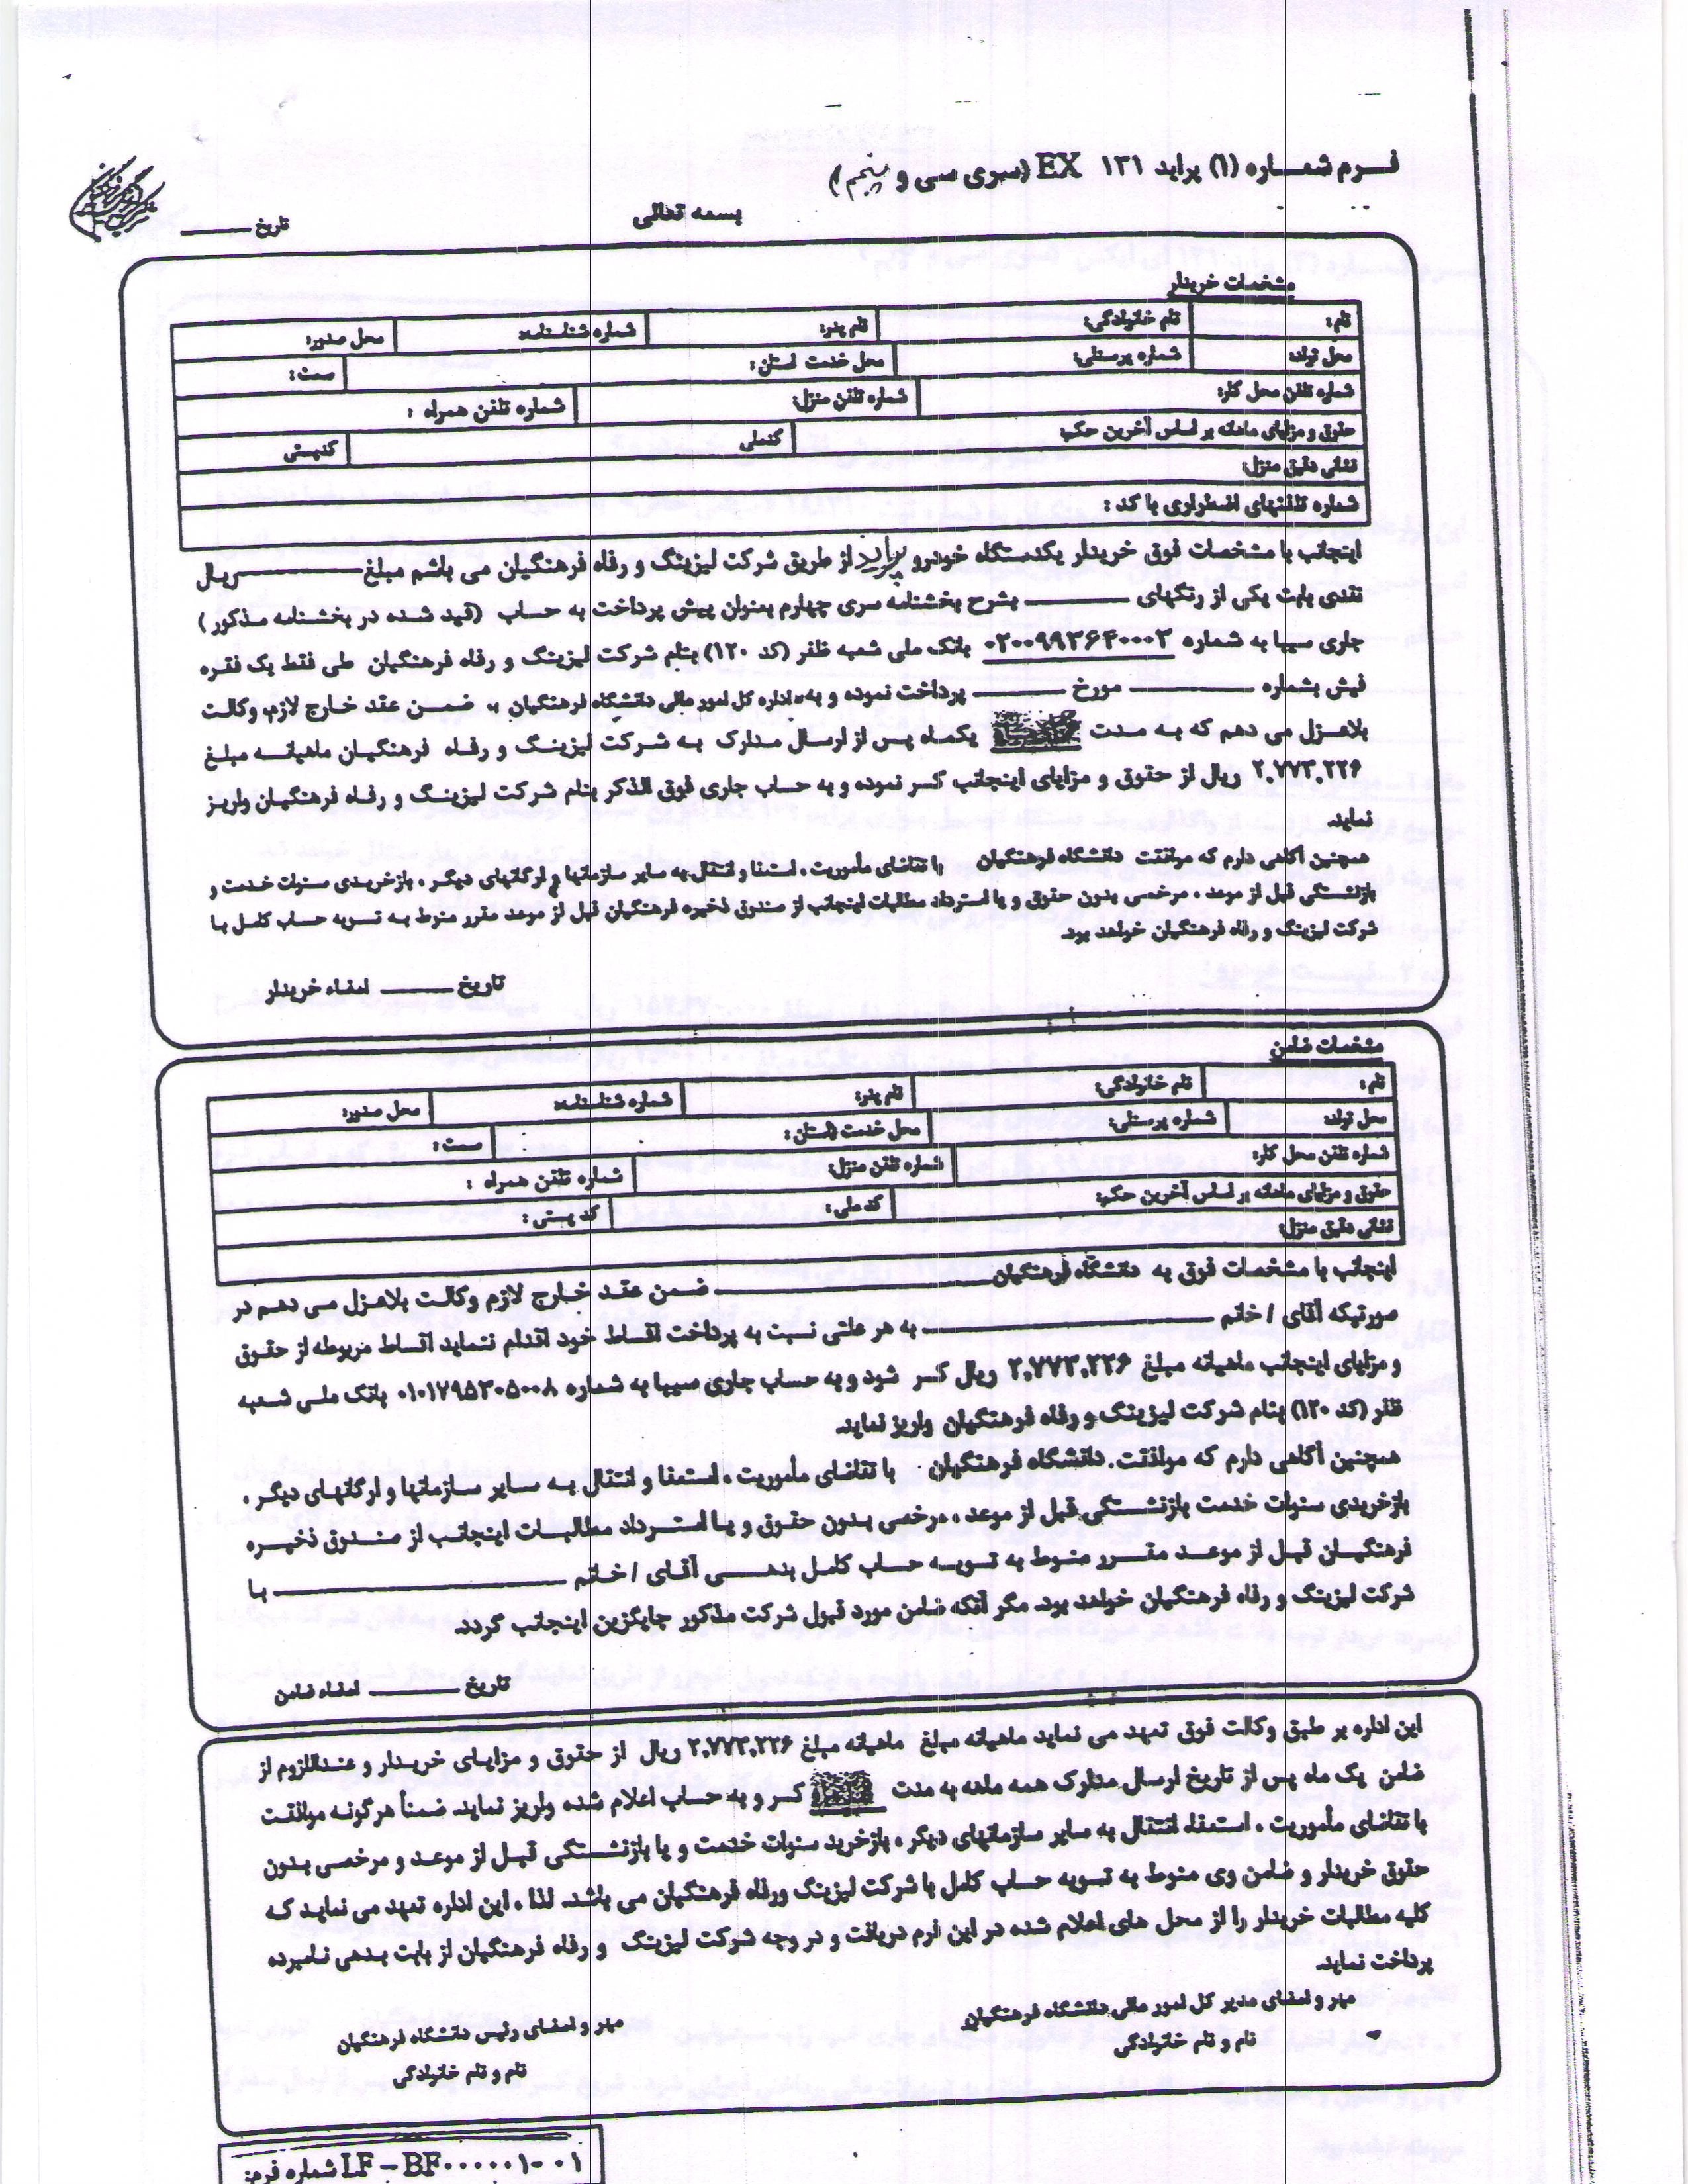 فرم شماره (۱) پراید ۱۳۱ EX (سری سی و پنجم)
بسمه تعالی
تاریخ
مشخصات خریدار
نام: نام خانوادگی: نام پدر: شماره شناسنامه: محل صدور:
محل تولد: شماره پرسنلی: محل خدمت استان: سمت:
شماره تلفن محل کار: شماره تلفن منزل: شماره تلفن همراه :
حقوق و مزایای ماهانه بر اساس آخرین حکم: کدملی کدپستی
نشانی دقیق منزل:
شماره تلفنهای اضطراری با کد :
اینجانب با مشخصات فوق خریدار یکدستگاه خودرو پراید از طریق شرکت لیزینگ و رفاه فرهنگیان می باشم مبلغ ریال
نقدی بابت یکی از رنگهای بشرح بخشنامه سری چهارم بعنوان پیش پرداخت به حساب (قید شده در بخشنامه مذکور)
جاری سیبا به شماره بانک ملی شعبه ظفر (کد ۱۲۰) بنام شرکت لیزینگ و رفاه فرهنگیان طی فقط یک فقره
فیش بشماره مورخ پرداخت نموده و به« اداره کل امور مالی دانشگاه فرهنگیان » ضمن عقد خارج لازم وکالت
بلاعزل می دهم که به مدت یکماه پس از ارسال مدارک به شرکت لیزینگ و رفاه فرهنگیان ماهیانه مبلغ
۲,۷۷۳,۲۲۶ ریال از حقوق و مزایای اینجانب کسر نموده و به حساب جاری فوق الذکر بنام شرکت لیزینگ و رفاه فرهنگیان واریز
نماید.
همچنین آگاهی دارم که موافقت دانشگاه فرهنگیان با تقاضای مأموریت ، استعفا و انتقال به سایر سازمانها و ارگانهای دیگر ، بازخریدی سنوات خدمت و
بازنشستگی قبل از موعد ، مرخصی بدون حقوق و یا استرداد مطالبات اینجانب از صندوق ذخیره فرهنگیان قبل از موعد مقرر منوط به تسویه حساب کامل با
شرکت لیزینگ و رفاه فرهنگیان خواهد بود.
تاریخ امضاء خریدار
مشخصات ضامن
نام : نام خانوادگی: نام پدر: شماره شناسنامه: محل صدور:
محل تولد: شماره پرسنلی: محل خدمت (استان: سمت :
شماره تلفن محل کار: شماره تلفن منزل: شماره تلفن همراه :
حقوق و مزایای ماهانه بر اساس آخرین حکم: کدملی : کد پستی :
نشانی دقیق منزل:
اینجانب با مشخصات فوق به دانشگاه فرهنگیان ضمن عقد خارج لازم وکالت بلاعزل می دهم در
صورتیکه آقای / خانم به هر علتی نسبت به پرداخت اقساط خود اقدام ننماید اقساط مربوطه از حقوق
و مزایای اینجانب ماهیانه مبلغ ۲,۷۷۳,۲۲۶ ریال کسر شود و به حساب جاری سیبا به شماره ۰۱۰۱۷۹۵۳۰۵۰۰۸ بانک ملی شعبه
ظفر (کد ۱۲۰) بنام شرکت لیزینگ و رفاه فرهنگیان واریز نماید.
همچنین آگاهی دارم که موافقت دانشگاه فرهنگیان با تقاضای مأموریت ، استعفا و انتقال به سایر سازمانها و ارگانهای دیگر ،
بازخریدی سنوات خدمت بازنشستگی قبل از موعد ، مرخصی بدون حقوق و یا استرداد مطالبات اینجانب از صندوق ذخیره
فرهنگیان قبل از موعد مقرر منوط به تسویه حساب کامل بدهی آقای / خانم با
شرکت لیزینگ و رفاه فرهنگیان خواهد بود. مگر آنکه ضامن مورد قبول شرکت مذکور جایگزین اینجانب گردد.
تاریخ امضاء ضامن
این اداره بر طبق وکالت فوق تعهد می نماید ماهیانه مبلغ ماهیانه مبلغ ۲,۷۷۳,۲۲۶ ریال از حقوق و مزایای خریدار و عنداللزوم از
ضامن یک ماه پس از تاریخ ارسال مدارک همه ماهه به مدت کسر و به حساب اعلام شده واریز نماید. ضمناً هرگونه موافقت
با تقاضای مأموریت ، استعفاء انتقال به سایر سازمانهای دیگر ، بازخرید سنوات خدمت و یا بازنشستگی قبل از موعد و مرخصی بدون
حقوق خریدار و ضامن وی منوط به تسویه حساب کامل با شرکت لیزینگ ورفاه فرهنگیان می باشد. لذا ، این اداره تعهد می نماید که
کلیه مطالبات خریدار را از محل های اعلام شده در این فرم دریافت و در وجه شرکت لیزینگ و رفاه فرهنگیان از بابت بدهی نامبرده
پرداخت نماید.
مهر و امضای مدیر کل امور مالی دانشگاه فرهنگیان مهر و امضای رئیس دانشگاه فرهنگیان
نام و نام خانوادگی نام و نام خانوادگی
شماره فرم: LF-BF۰۰۰۰۰۱-۰۱